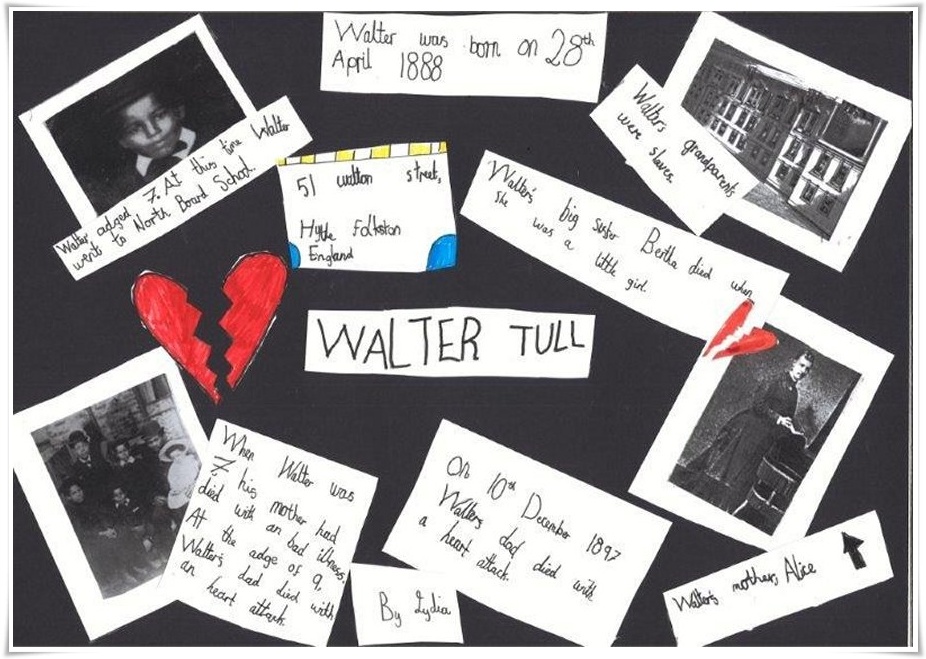 Walter was born on 28th
April 1888
Walter adged 7. At this time Walter
went to North Board School.
51 walton street,
Hythe Folkston
England
Walter's grandparents
were slaves.
Walter's big sister Bertha died when
She was a little girl.
WALTER TULL
When Walter was
7 his mother had
died with an bad illness.
At the adge of 9,
Walter's dad died with
an heart attack.
On 10th December 1897
Walter's dad died with
a heart attack.
By Lydia
Walter's mother, Alice